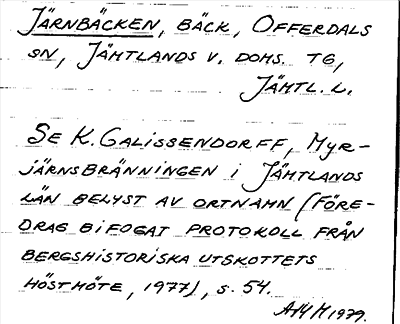 JÄRNBÄCKEN, BÄCK, OFFERDALS
SN, JÄMTLANDS V. DOMS. TG,
JÄMTL. L.
SE K. GALISSENDORFF, MYR-
JÄRNSBRÄNNINGEN I JÄMTLANDS
LÄN BELYST AV ORTNAMN (FÖRE-
DRAG BIFOGAT PROTOKOLL FRÅN
BERGSHISTORISKA UTSKOTTETS
HÖSTMÖTE, 1977), S. 54.
AHM 1979.